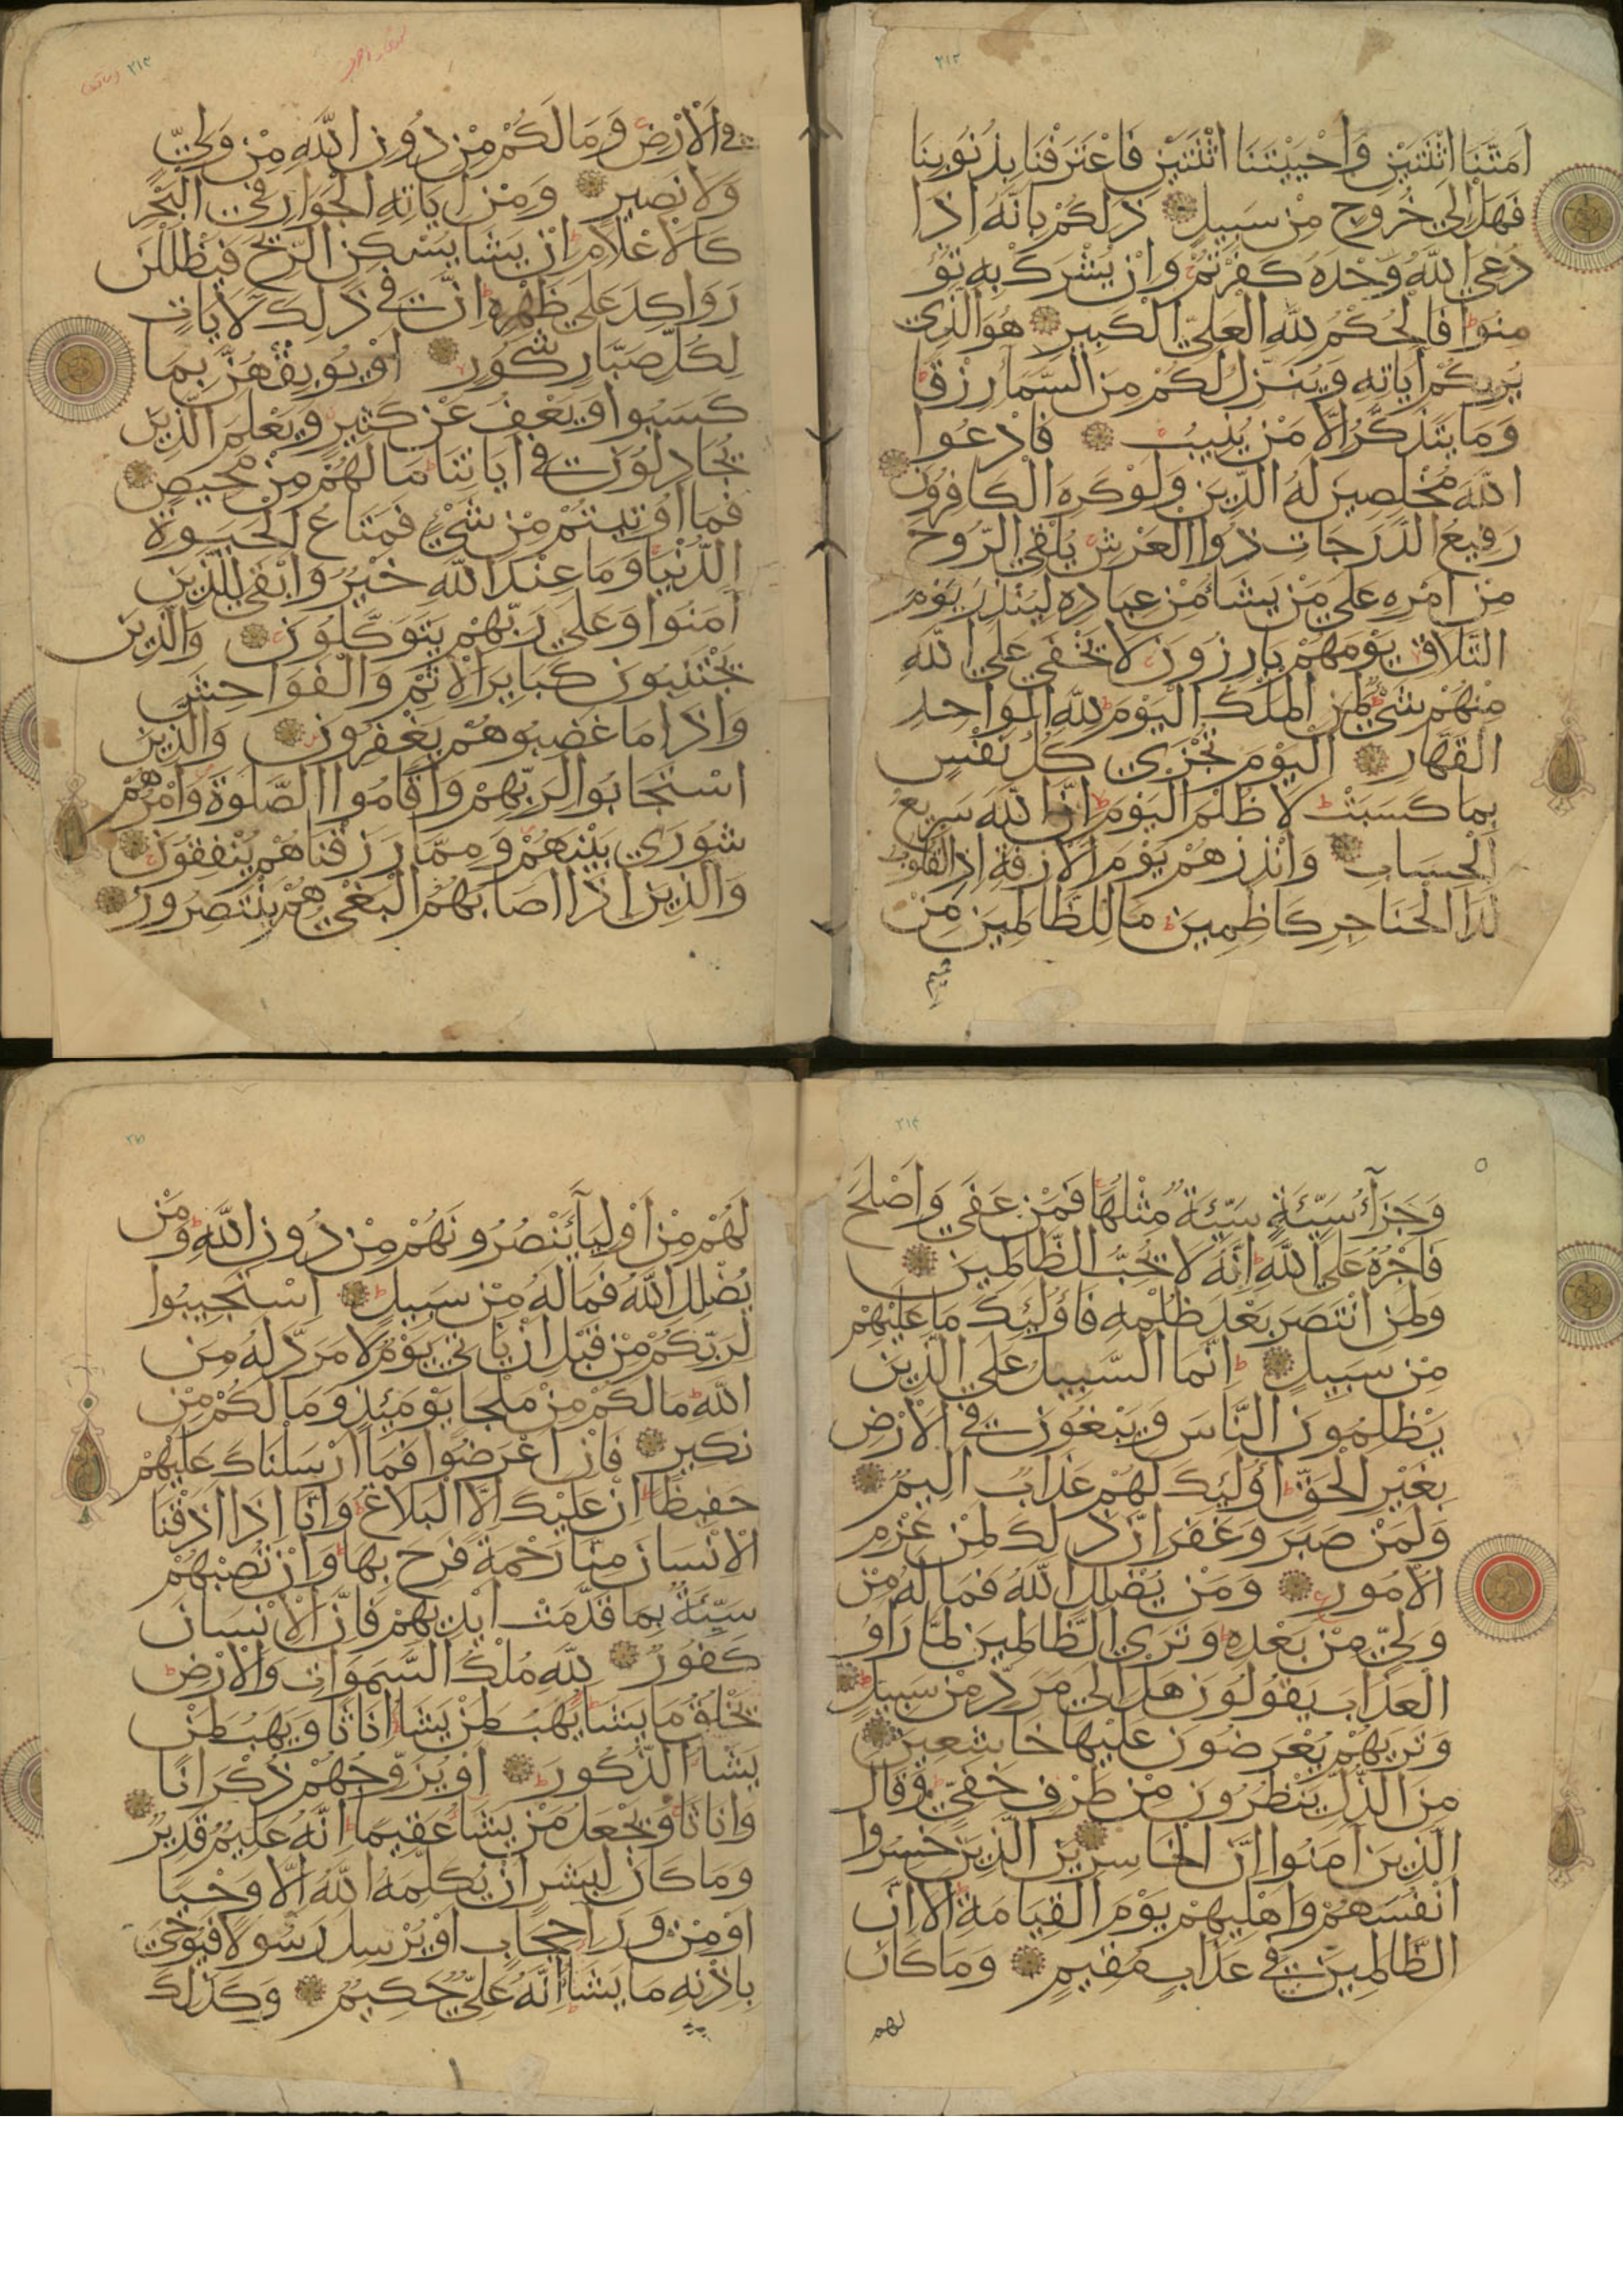 ٢١٢
اَمَتَّنَا اثْنَتَيْنِ وَاَحْيَيْتَنَا اثْنَتَيْنِ فَاعْتَرَفْنَا بِذُنُوبِنَا
فَهَلْ اِلَى خُرُوجٍ مِنْ سَبِيلٍ ذَلِكُمْ بِاَنَّهُ اِذَا
دُعِيَ اللّٰهُ وَحْدَهُ كَفَرْتُمْ وَاِنْ يُشْرَكْ بِهِ تُؤْ
مِنُوا فَالْحُكْمُ لِلّٰهِ الْعَلِيِّ الْكَبِيرِ هُوَ الَّذِي
يُرِيكُمْ اَيَاتِهِ وَيُنَزِّلُ لَكُمْ مِنَ السَّمَا رِزْقًا
وَمَا يَتَذَكَّرُ اِلَّا مَنْ يُنِيبُ فَادْعُوا
اللّٰهَ مُخْلِصِينَ لَهُ الدِّينَ وَلَوْ كَرِهَ الْكَافِرُونَ
رَفِيعُ الدَّرَجَاتِ ذُوا الْعَرْشِ يُلْقِي الرُّوحَ
مِنْ اَمْرِهِ عَلَى مَنْ يَشَاءُ مِنْ عِبَادِهِ لِيُنْذِرَ يَوْمَ
التَّلَاقِ يَوْمَهُمْ بَارِزُونَ لَا يَخْفَى عَلَى اللّٰهِ
مِنْهُمْ شَيْءٌ لِمَنِ الْمُلْكُ الْيَوْمَ لِلّٰهِ الْوَاحِدِ
الْقَهَّارِ اَلْيَوْمَ تُجْزَى كُلُّ نَفْسٍ
بِمَا كَسَبَتْ لَا ظُلْمَ الْيَوْمَ اِنَّ اللّٰهَ سَرِيعُ
الْحِسَابِ وَاَنْذِرْهُمْ يَوْمَ الْاَزِفَةِ اِذِ الْقُلُوبُ
لَدَا الْحَنَاجِرِ كَاظِمِينَ مَا لِلظَّالِمِينَ مِنْ
٢١٣
فِي الْاَرْضِ وَمَا لَكُمْ مِنْ دُونِ اللّٰهِ مِنْ وَلِيٍّ
وَلَا نَصِيرٍ وَمِنْ اَيَاتِهِ الْجَوَارِ فِي الْبَحْرِ
كَالْاَعْلَامِ اِنْ يَشَا يُسْكِنِ الرِّيحَ فَيَظْلَلْنَ
رَوَاكِدَ عَلَى ظَهْرِهِ اِنَّ فِي ذَلِكَ لَاَيَاتٍ
لِكُلِّ صَبَّارٍ شَكُورٍ اَوْ يُوبِقْهُنَّ بِمَا
كَسَبُوا وَيَعْفُ عَنْ كَثِيرٍ وَيَعْلَمَ الَّذِينَ
يُجَادِلُونَ فِي اَيَاتِنَا مَا لَهُمْ مِنْ مَحِيصٍ
فَمَا اُوتِيتُمْ مِنْ شَيْءٍ فَمَتَاعُ الْحَيَوةِ
الدُّنْيَا وَمَا عِنْدَ اللّٰهِ خَيْرٌ وَاَبْقَى لِلَّذِينَ
اَمَنُوا وَعَلَى رَبِّهِمْ يَتَوَكَّلُونَ وَالَّذِينَ
يَجْتَنِبُونَ كَبَايِرَ الْاِثْمِ وَالْفَوَاحِشَ
وَاِذَا مَا غَضِبُوا هُمْ يَغْفِرُونَ وَالَّذِينَ
اسْتَجَابُوا لِرَبِّهِمْ وَاَقَامُوا الصَّلَوةَ وَاَمْرُهُمْ
شُورَى بَيْنَهُمْ وَمِمَّا رَزَقْنَاهُمْ يُنْفِقُونَ
وَالَّذِينَ اِذَا اَصَابَهُمُ الْبَغْيُ هُمْ يَنْتَصِرُونَ
٢١٤
وَجَزَآءُ سَيِّئَةٍ سَيِّئَةٌ مِثْلُهَا فَمَنْ عَفَى وَاَصْلَحَ
فَاَجْرُهُ عَلَى اللّٰهِ اِنَّهُ لَا يُحِبُّ الظَّالِمِينَ
وَلَمَنِ انْتَصَرَ بَعْدَ ظُلْمِهِ فَاُولَئِكَ مَا عَلَيْهِمْ
مِنْ سَبِيلٍ اِنَّمَا السَّبِيلُ عَلَى الَّذِينَ
يَظْلِمُونَ النَّاسَ وَيَبْغُونَ فِي الْاَرْضِ
بِغَيْرِ الْحَقِّ اُولَئِكَ لَهُمْ عَذَابٌ اَلِيمٌ
وَلَمَنْ صَبَرَ وَغَفَرَ اِنَّ ذَلِكَ لَمِنْ عَزْمِ
الْاُمُورِ وَمَنْ يُضْلِلِ اللّٰهُ فَمَا لَهُ مِنْ
وَلِيٍّ مِنْ بَعْدِهِ وَتَرَى الظَّالِمِينَ لَمَّا رَاَوُ
الْعَذَابَ يَقُولُونَ هَلْ اِلَى مَرَدٍّ مِنْ سَبِيلٍ
وَتَرَيهُمْ يُعْرَضُونَ عَلَيْهَا خَاشِعِينَ
مِنَ الذُّلِّ يَنْظُرُونَ مِنْ طَرْفٍ خَفِيٍّ وَقَالَ
الَّذِينَ اَمَنُوا اِنَّ الْخَاسِرِينَ الَّذِينَ خَسِرُوا
اَنْفُسَهُمْ وَاَهْلِيهِمْ يَوْمَ الْقِيَامَةِ اَلَا اِنَّ
الظَّالِمِينَ فِي عَذَابٍ مُقِيمٍ وَمَا كَانَ
لهم
لَهُمْ مِنْ اَوْلِيَآءَ يَنْصُرُونَهُمْ مِنْ دُونِ اللّٰهِ وَمَنْ
يُضْلِلِ اللّٰهُ فَمَا لَهُ مِنْ سَبِيلٍ اِسْتَجِيبُوا
لِرَبِّكُمْ مِنْ قَبْلِ اَنْ يَاْتِيَ يَوْمٌ لَا مَرَدَّ لَهُ مِنَ
اللّٰهِ مَا لَكُمْ مِنْ مَلْجَا يَوْمَئِذٍ وَمَا لَكُمْ مِنْ
نَكِيرٍ فَاِنْ اَعْرَضُوا فَمَا اَرْسَلْنَاكَ عَلَيْهِمْ
حَفِيظًا اِنْ عَلَيْكَ اِلَّا الْبَلَاغُ وَاِنَّا اِذَا اَذَقْنَا
الْاِنْسَانَ مِنَّا رَحْمَةً فَرِحَ بِهَا وَاِنْ تُصِبْهُمْ
سَيِّئَةٌ بِمَا قَدَّمَتْ اَيْدِيهِمْ فَاِنَّ الْاِنْسَانَ
كَفُورٌ لِلّٰهِ مُلْكُ السَّمَوَاتِ وَالْاَرْضِ
يَخْلُقُ مَا يَشَا يَهَبُ لِمَنْ يَشَا اِنَاثًا وَيَهَبُ لِمَنْ
يَشَا الذُّكُورَ اَوْ يُزَوِّجُهُمْ ذُكْرَانًا
وَاِنَاثًا وَيَجْعَلُ مَنْ يَشَا عَقِيمًا اِنَّهُ عَلِيمٌ قَدِيرٌ
وَمَا كَانَ لِبَشَرٍ اَنْ يُكَلِّمَهُ اللّٰهُ اِلَّا وَحْيًا
اَوْ مِنْ وَرَاءِ حِجَابٍ اَوْ يُرْسِلَ رَسُولًا فَيُوحِيَ
بِاِذْنِهِ مَا يَشَا اِنَّهُ عَلِيٌّ حَكِيمٌ وَكَذَلِكَ